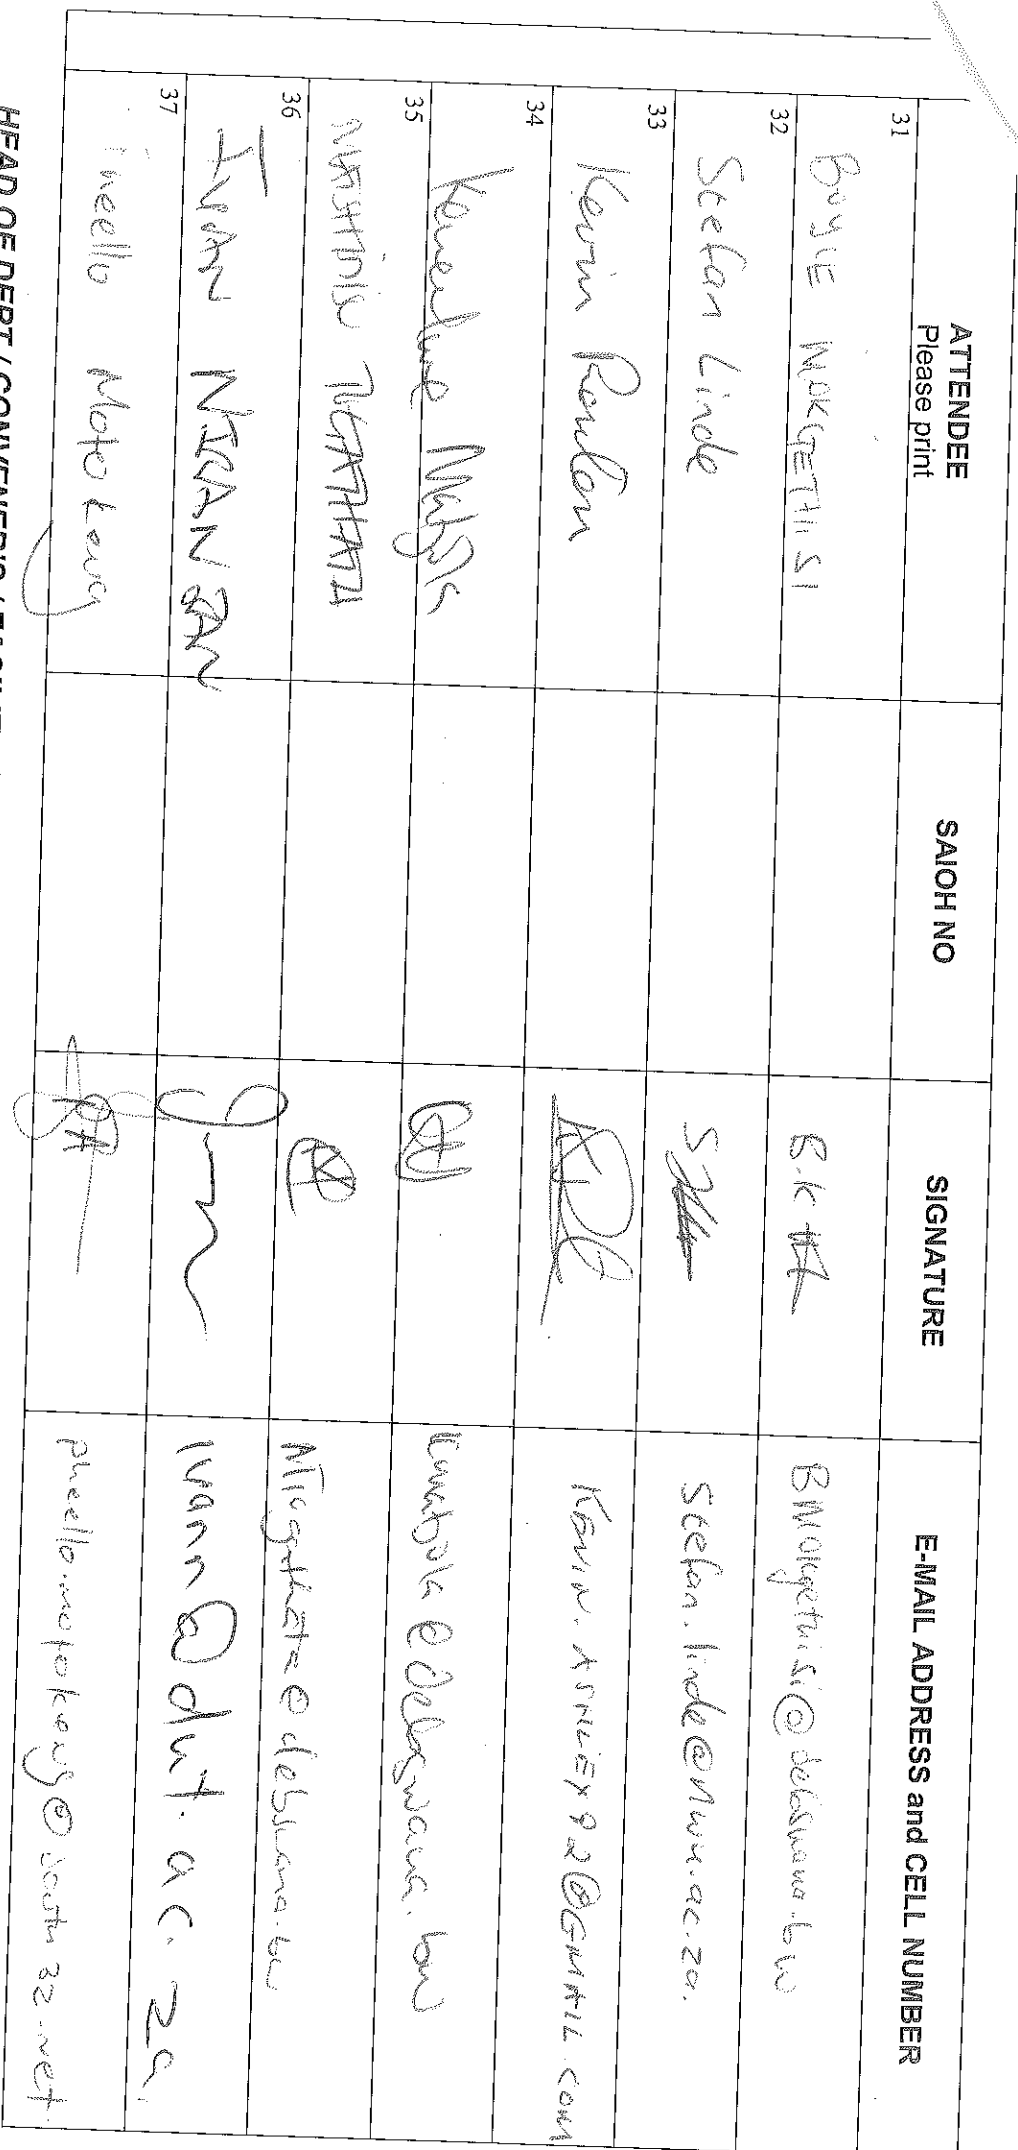 ATTENDEE
Please print
SAIOH NO
SIGNATURE
E-MAIL ADDRESS and CELL NUMBER
31 BOYIE MOKGETHISI B.K Bmokgethisi@debswana.bw
32 Stefan Linde stefan.linde@nwu.ac.za.
33 Kevin KEVIN.ASTLEY92@GMAIL.COM
34 kmabola@debswana.bw
35 @debswana.bw
36 IVAN NIRANJAN ivann@dut.ac.za.
37 Pheello Motokeng pheello.motokeng@south32.net.
HEAD OF DEPT / CONVENER'S /